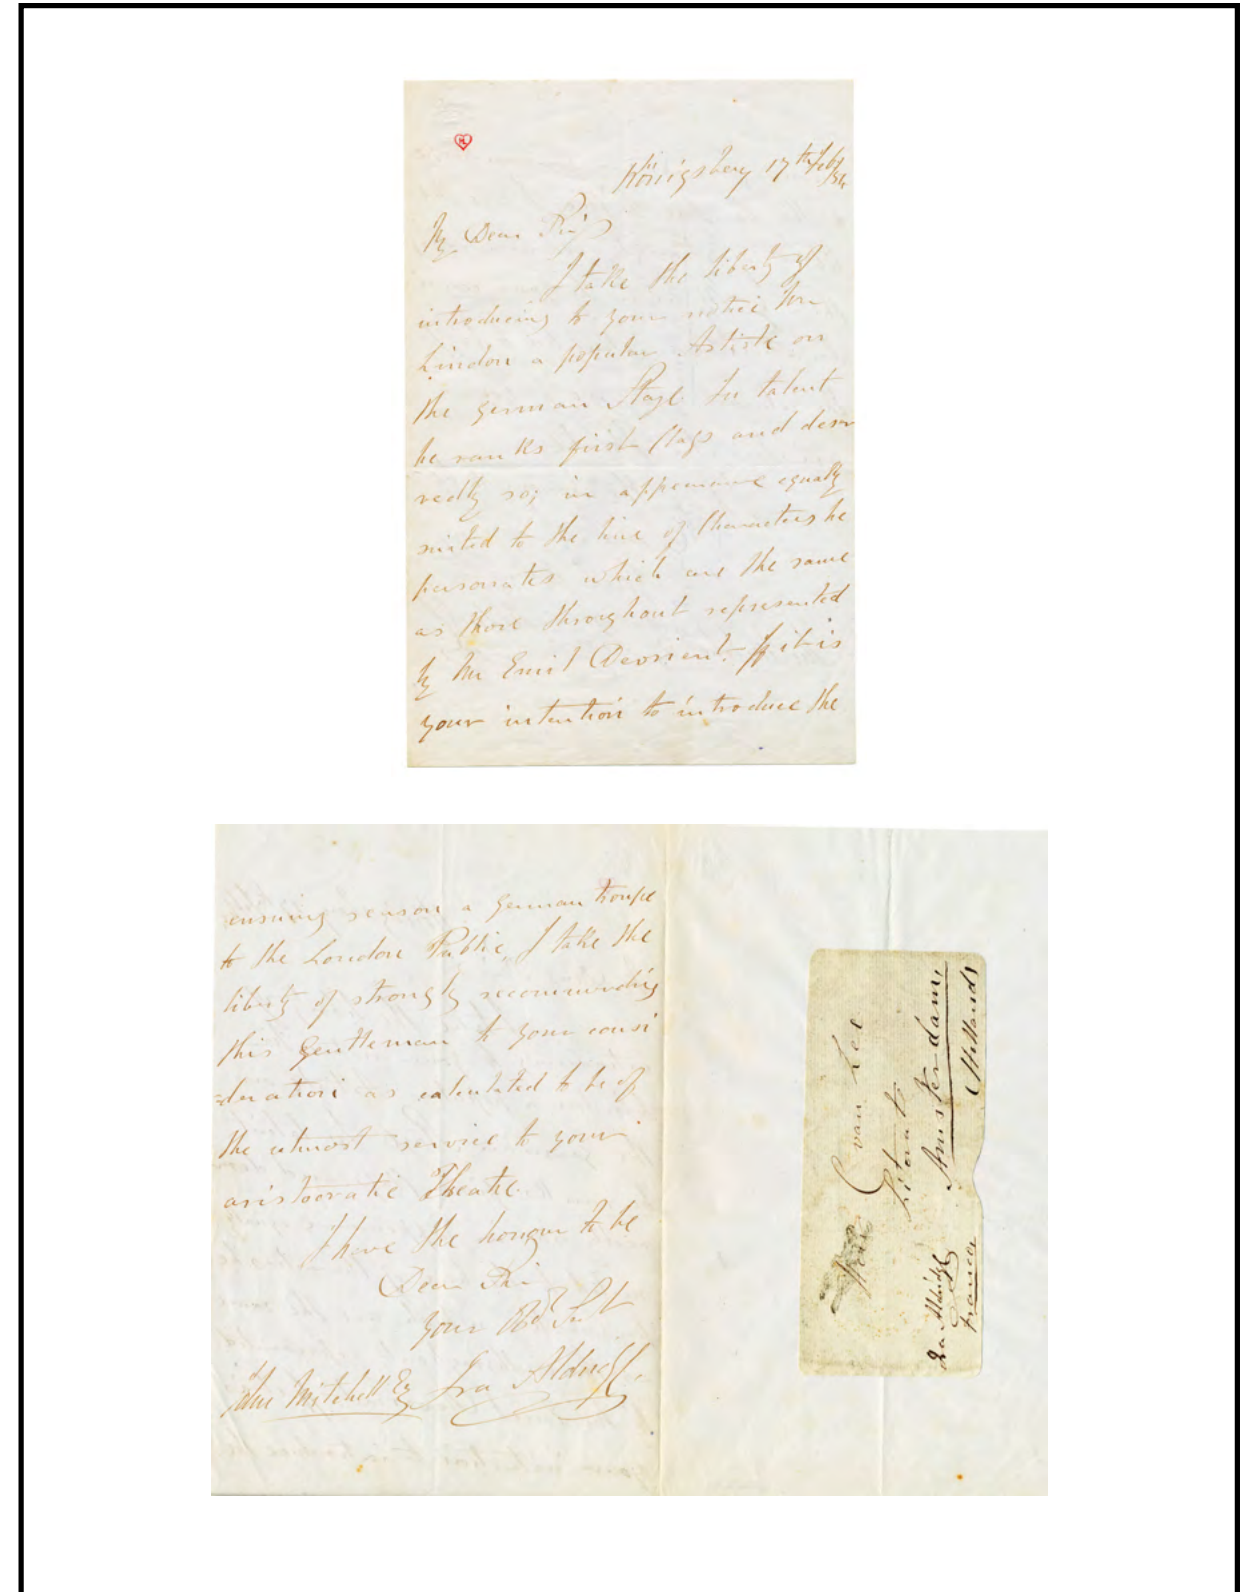 Königsberg 17th Feby /54
My Dear Sir,
I take the liberty of
introducing to your notice Mr
Lindon a popular Artiste on
the german Stage. In talent
he ranks first class and dese
redly so; in appearance equally
suited to the line of Characters he
personates which are the same
as those throughout represented
by Mr Emil Devrient. If it is
your intention to introduce the
ensuing season a german troupe
to the London Public, I take the
liberty of strongly recommending
this Gentleman to your consi
=deration as calculated to be of
the utmost service to your
aristocratic Theatre.
I have the honour to be
Dear Sir
your Obdt Svt
Jno Mitchell Esq Ira Aldridge.
van Lee
Literat
Amsterdam,
Hollands
Ira Aldridge